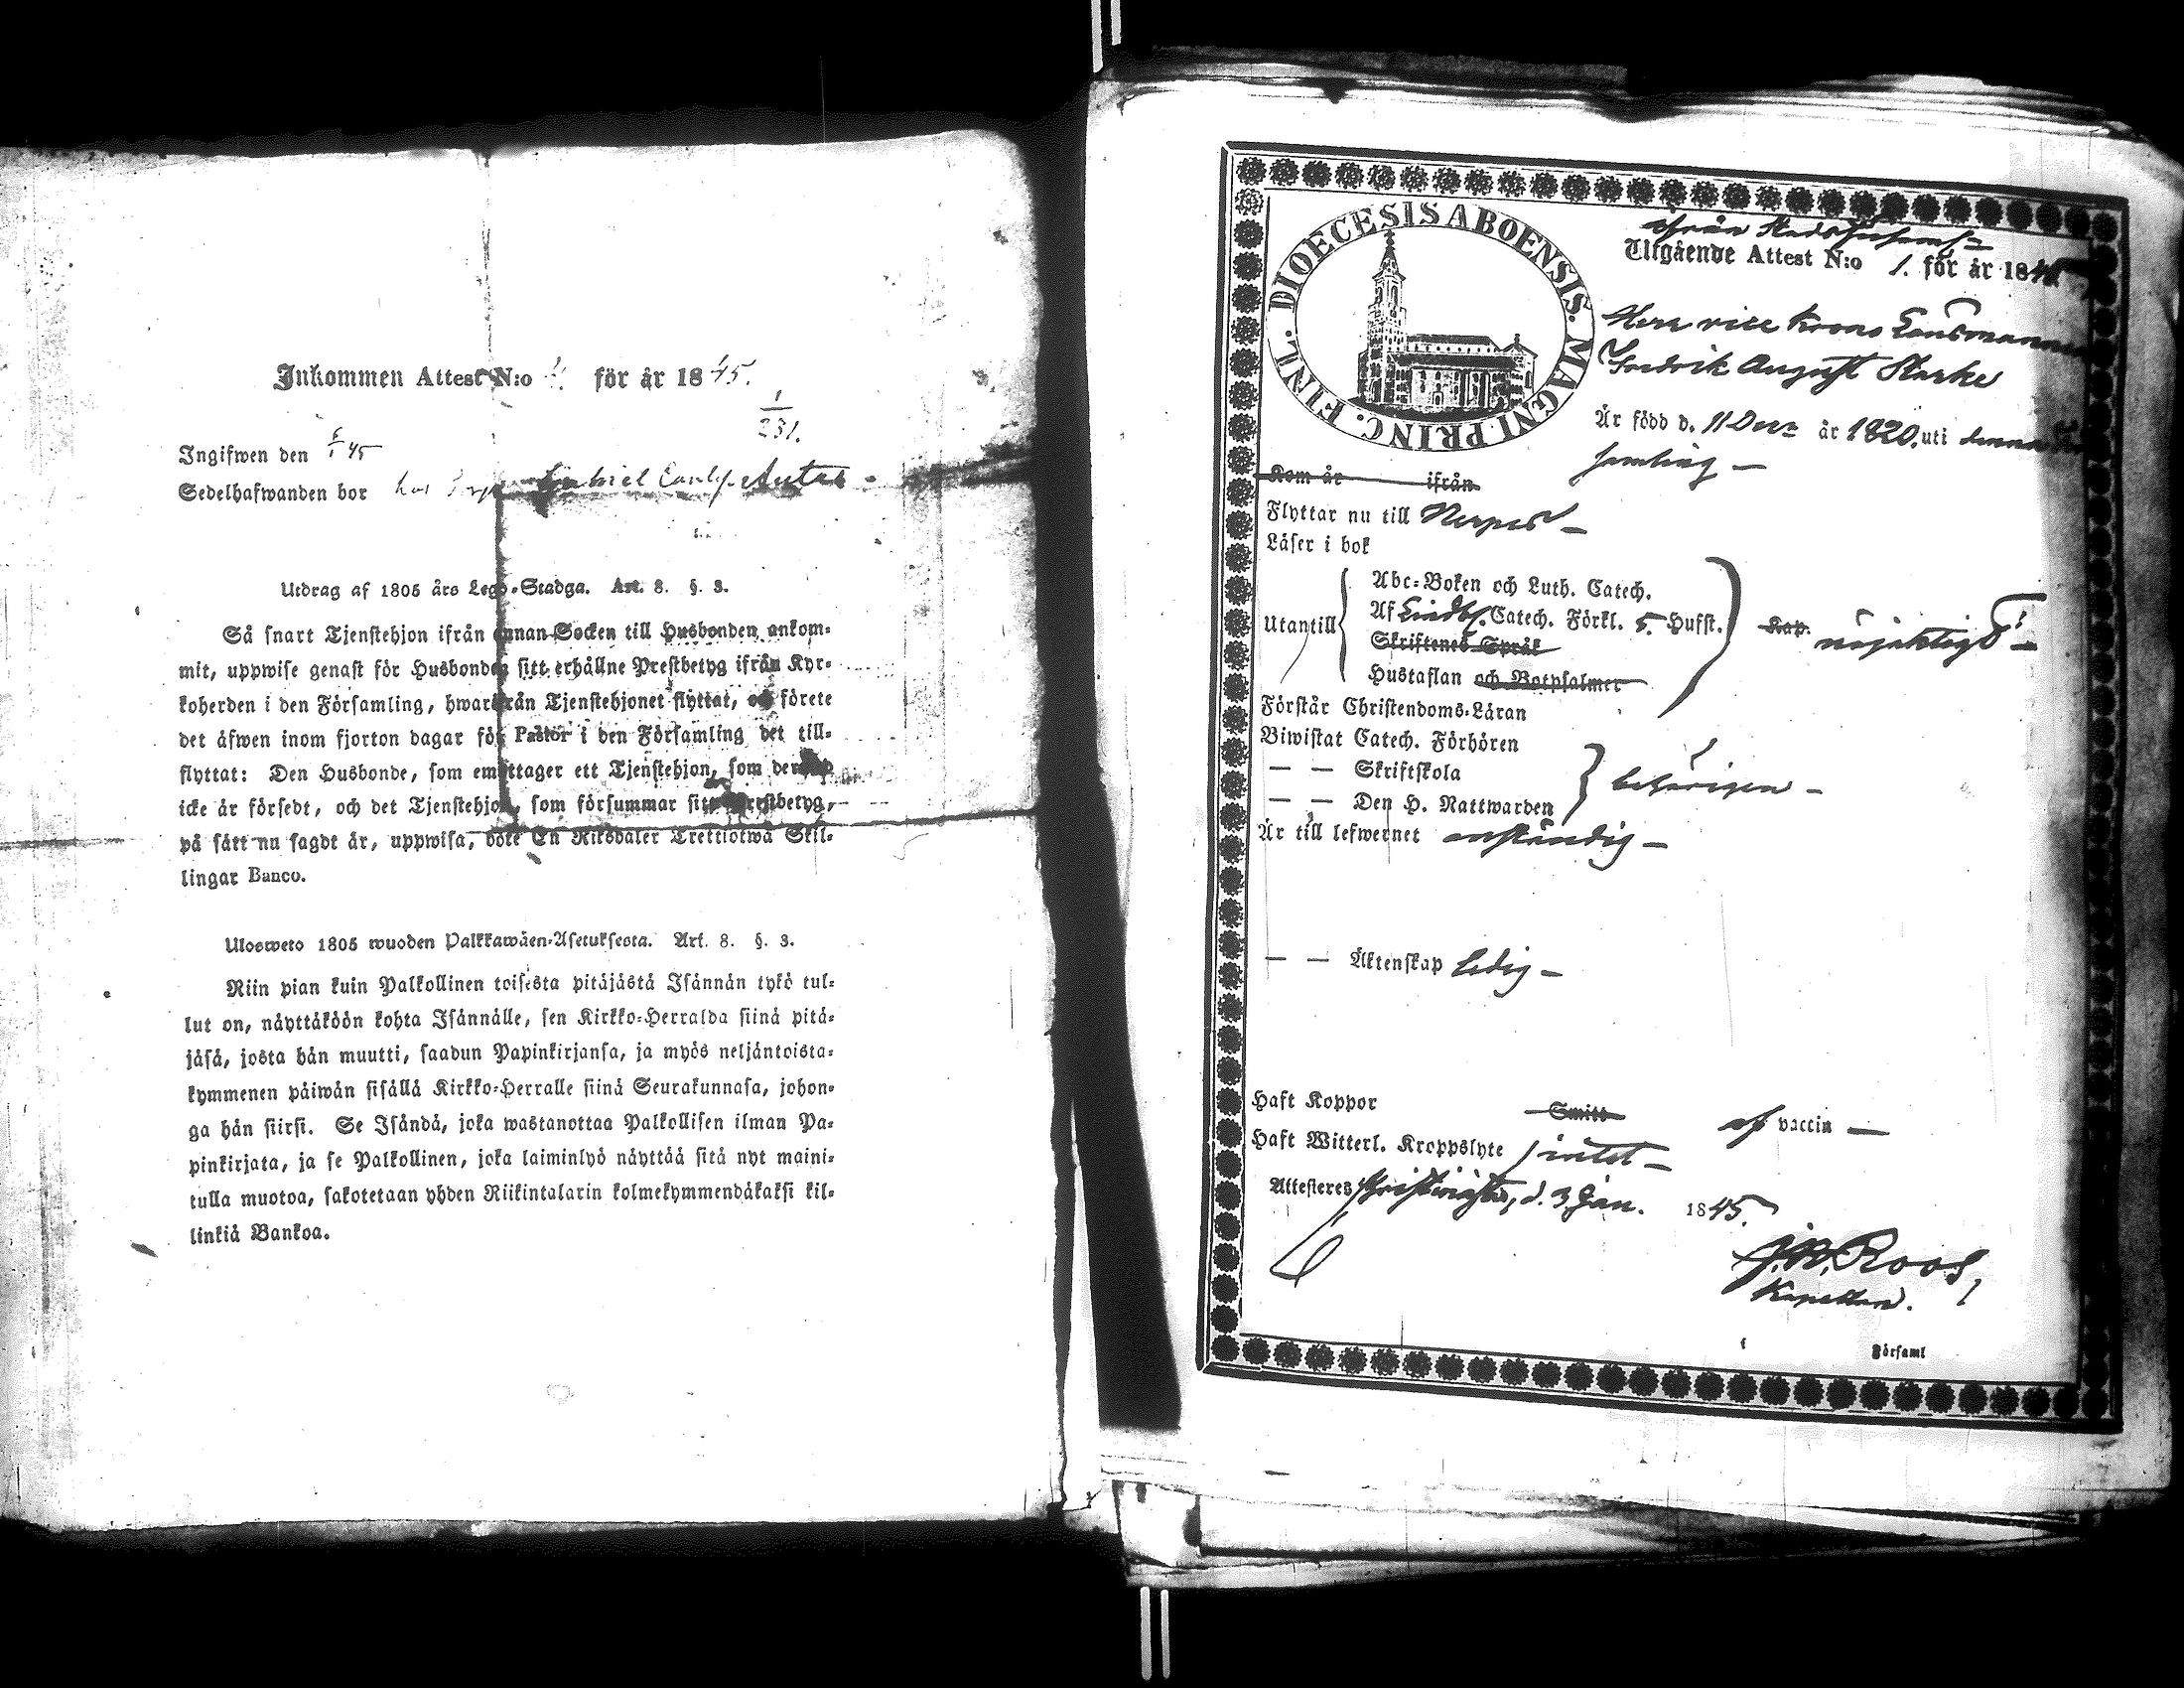 Inkommen Attest N:o 1. för år 1845.
1
231.
Ingifwen den 6/1 45
Sedelhafwanden bor hos
Utdrag af 1805 års Lego-Stadga. Art. 8. §. 3.
Så snart Tjenstehjon ifrån annan Socken till Husbonden ankom-
mit, uppwise genast för Husbonden sitt erhållne Prestbetyg ifrån Kyr-
koherden i den Församling, hwarifrån Tjenstehjonet flyttat, och förete
det äfwen inom fjorton dagar för Pastor i den Församling det till-
flyttat: Den Husbonde, som emottager ett Tjenstehjon, som dermed
icke är försedt, och det Tjenstehjon, som försummar sitt Prestbetyg,
på sätt nu sagdt är, uppwisa, böte En Riksdaler Trettiotwå Skil-
lingar Banco.
Ulosweto 1805 wuoden Palkkawäen-Asetuksesta. Art. 8. §. 3.
Niin pian kuin Palkollinen toisesta pitäjästä Isännän tykö tul-
lut on, näyttäköön kohta Isännälle, sen Kirkko-Herralda siinä pitä-
jäsä, josta hän muutti, saadun Papinkirjansa, ja myös neljäntoista-
kymmenen päiwän sisällä Kirkko-Herralle siinä Seurakunnasa, johon-
ga hän siirsi. Se Isändä, joka wastanottaa Palkollisen ilman Pa-
pinkirjata, ja se Palkollinen, joka laiminlyö näyttää sitä nyt maini-
tulla muotoa, sakotetaan yhden Riikintalarin kolmekymmendäkaksi kil-
linkiä Bankoa.
DIOECESIS ABOENSIS. MAGNI PRINC. FINL.
ifrån Stadsförsaml-
Utgående Attest N:o 1. för år 1845
Herr vice Krono Länsmannen
Fredrik August Starke
Är född d. 11 Decr år 1820. uti denna För
samling –
Kom år ifrån
Flyttar nu till Nerpes –
Läser i bok
Abc-Boken och Luth. Catech.
Utantill Af Catech. Förkl. 5. Hufst. Kap. nöjaktigt –
Skriftenes Språk
Hustaflan och Botpsalmer
Förstår Christendoms-Läran
Biwistat Catech. Förhören
— — Skriftskola behörigen –
— — Den H. Nattwarden
Är till lefwernet anständig –
— — Äktenskap ledig –
Haft Koppor Smitt af vaccin —
Haft Witterl. Kroppslyte intet –
Attesteres Christinæstad, d. 3 Jan. 1845.
Roos,
Kapellan.
Församl